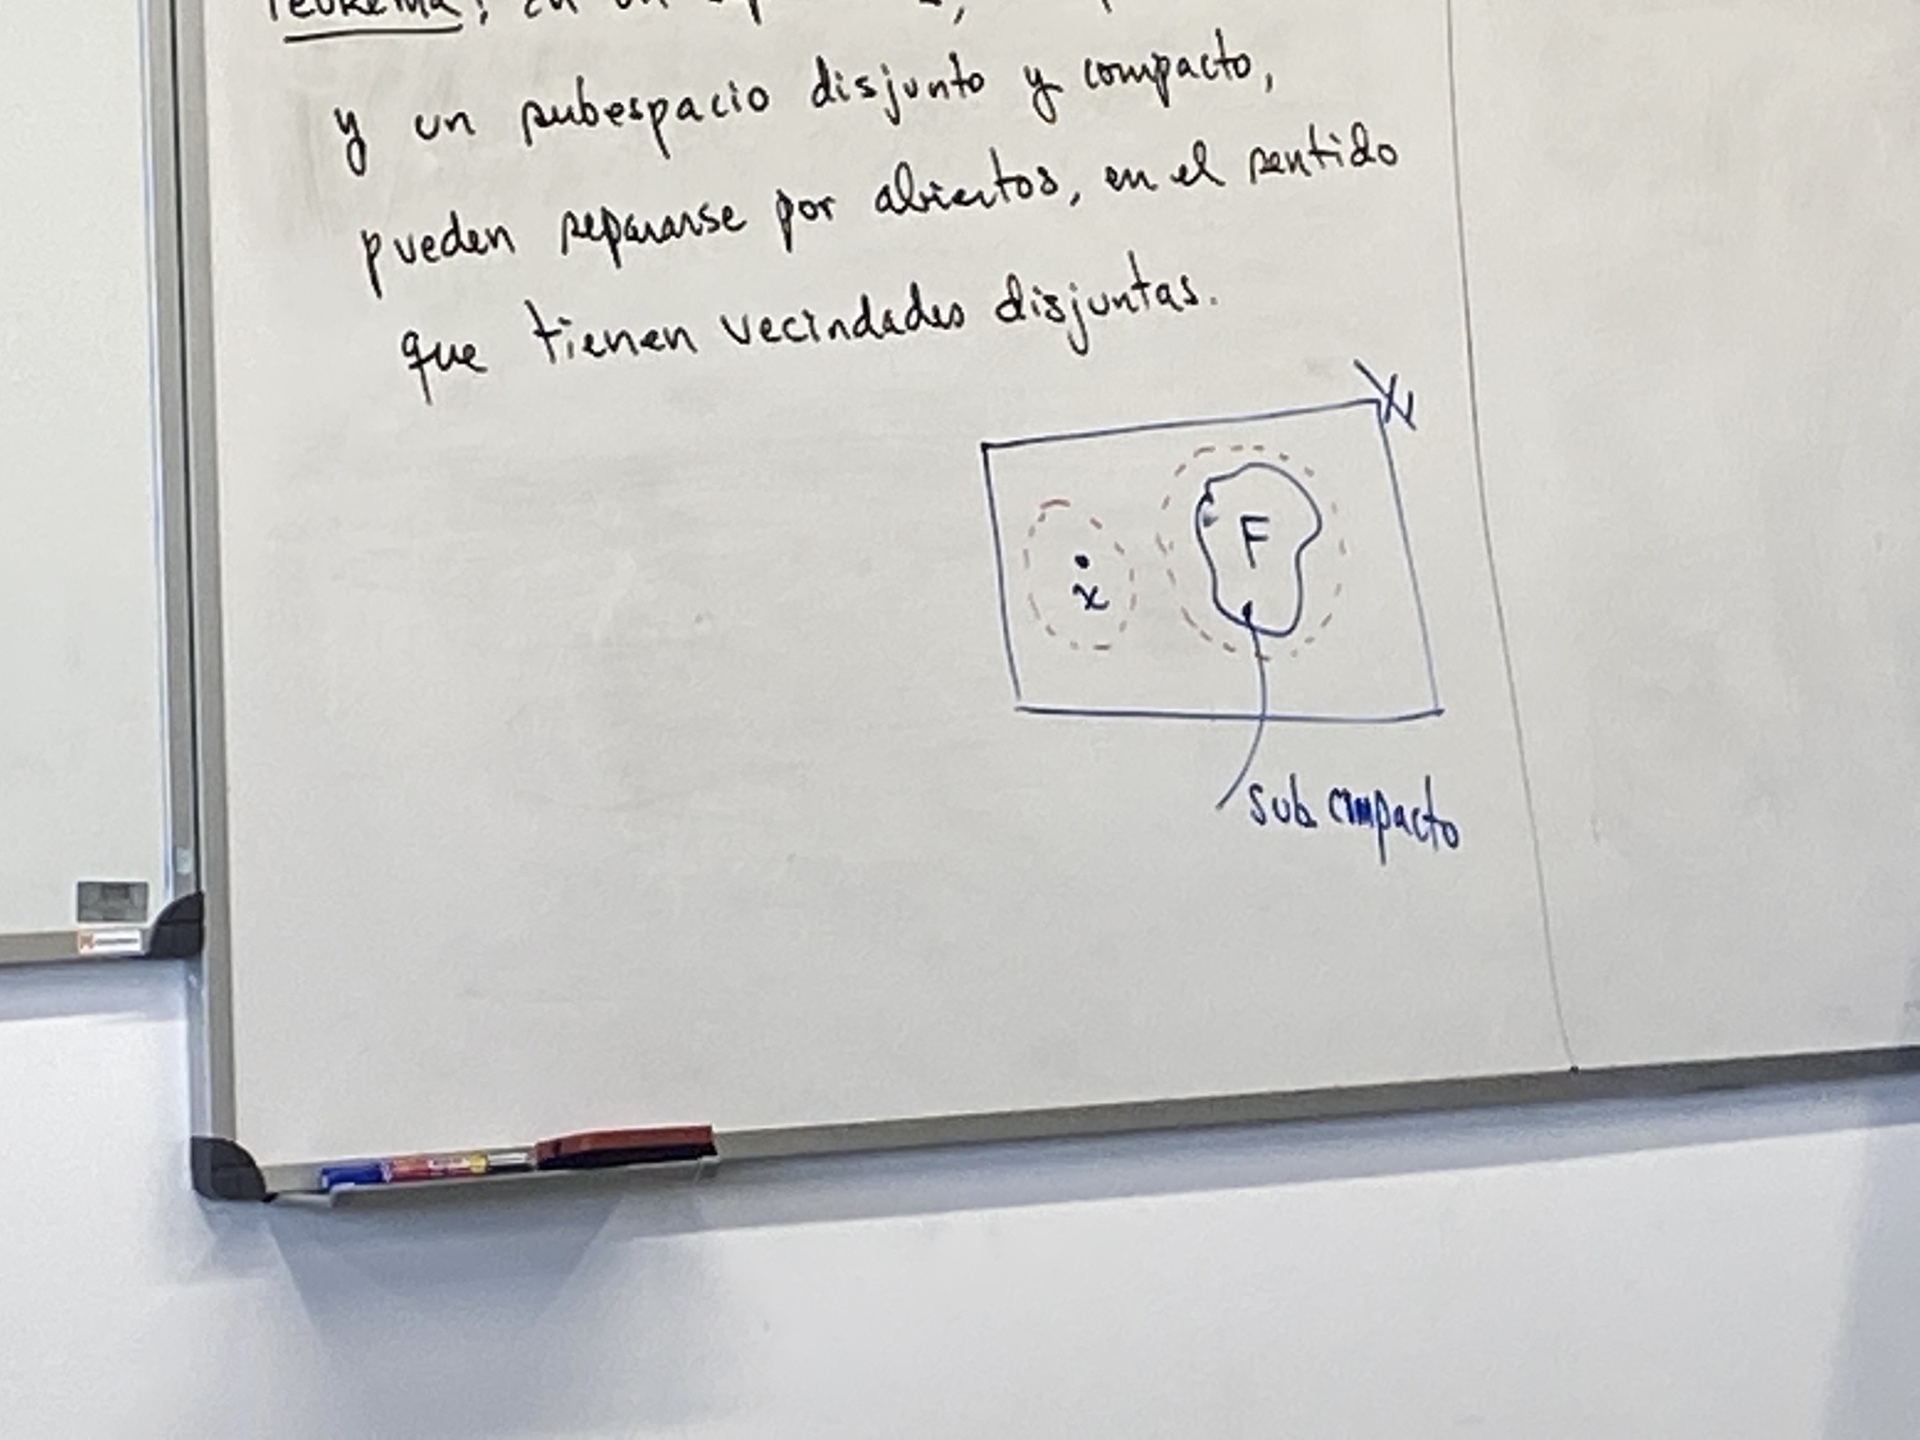 y un subespacio disjunto y compacto,
pueden separarse por abiertos, en el sentido
que tienen vecindades disjuntas.
X
F
x
sub compacto